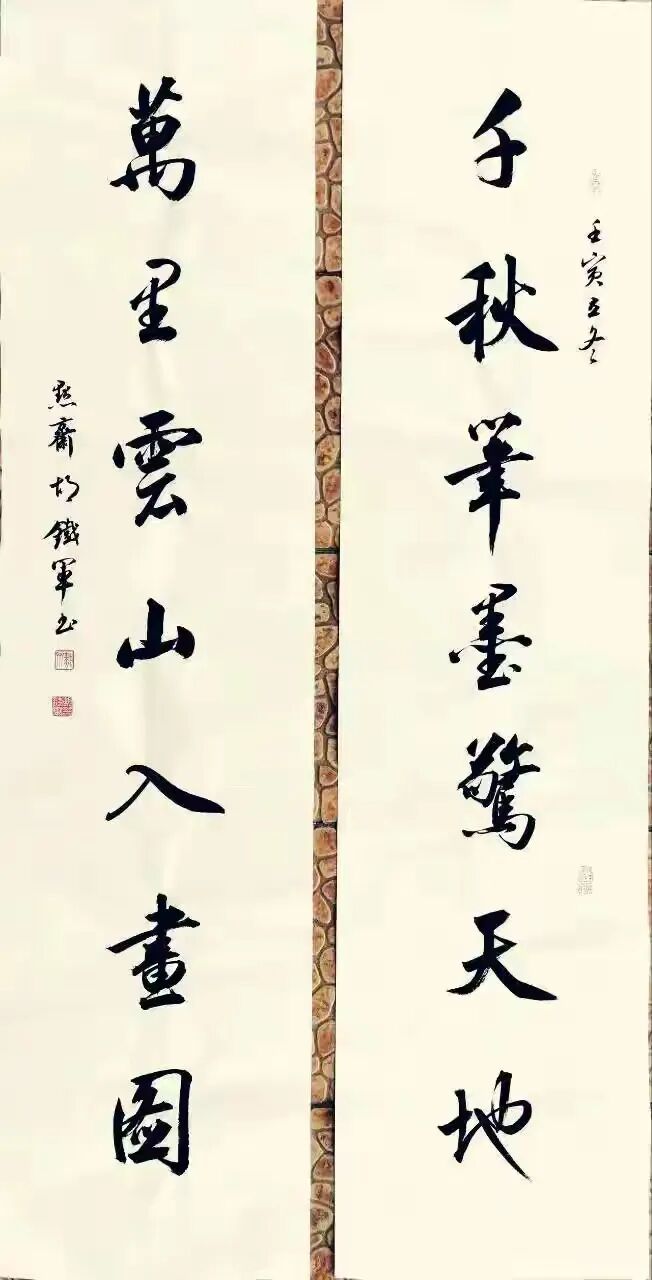 千秋筆墨驚天地
壬寅立冬
萬里雲山入畫圖
點齋胡鐵軍书